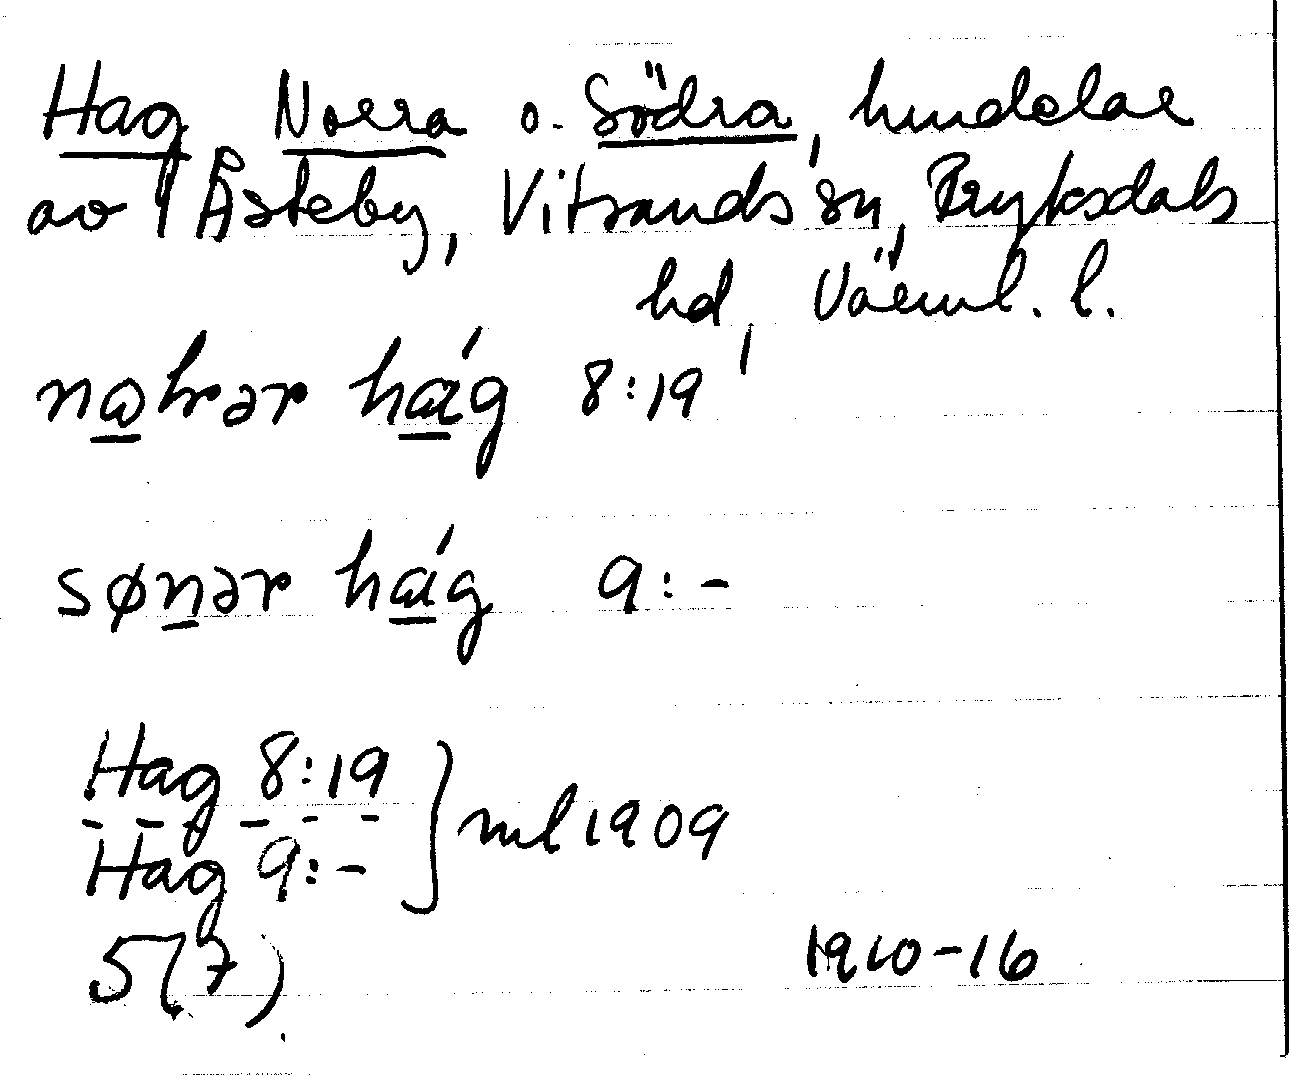 Hag Norra o. Södra, hmdelar
av Åsteby, Vitsands sn, Fryksdals
hd, Värml. l.
nɷhrər hág 8:19
sønər hág 9:-
Hag 8:19
Hag 9:- } ml 1909
5(7) 1910-16